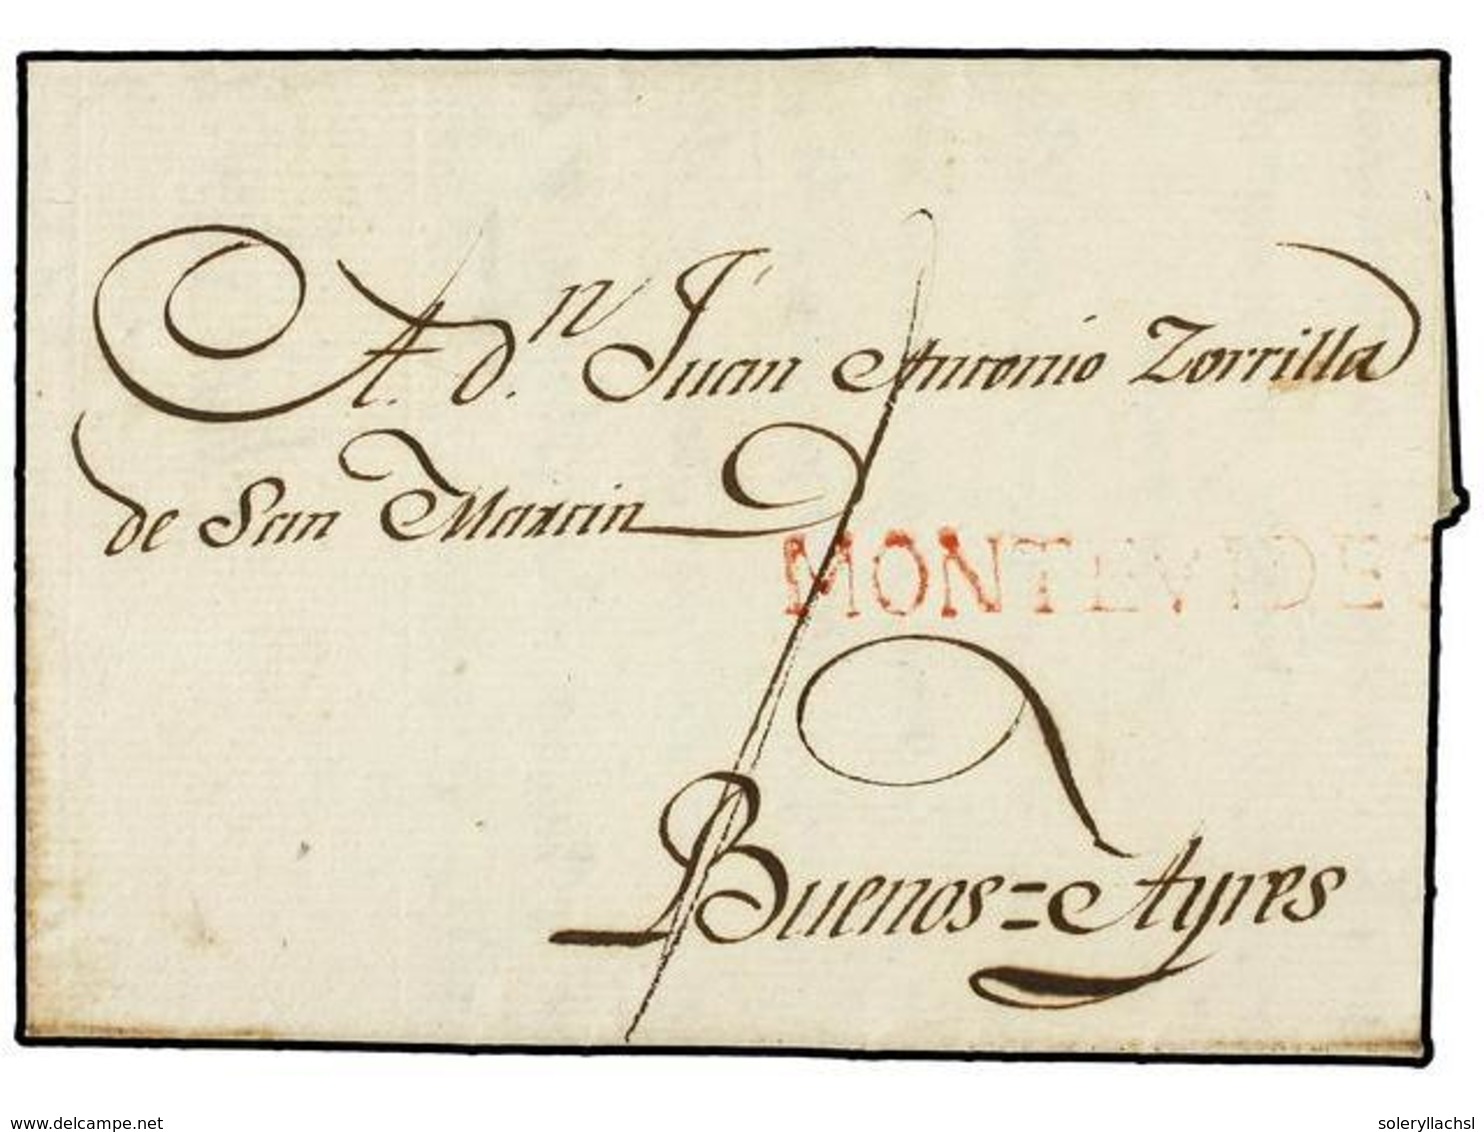 A. d.n Juan Antonio Zorrilla
de San Martin
MONTEVIDEO
Buenos=Ayres
www.delcampe.net
soleryllachsl